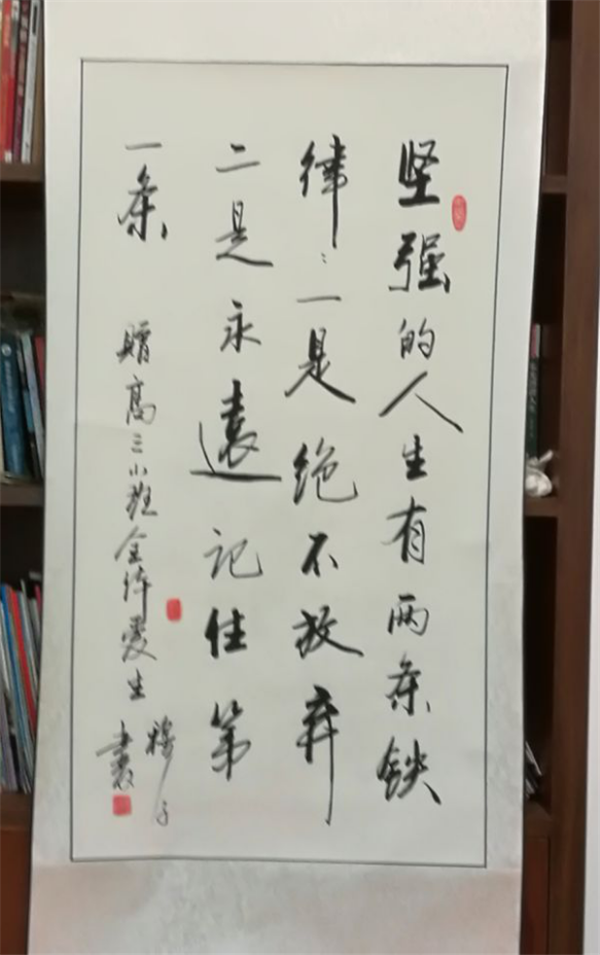 坚强的人生有两条铁
律：一是绝不放弃
二是永遠记住第
一条
赠高三小班全体爱生
子
書